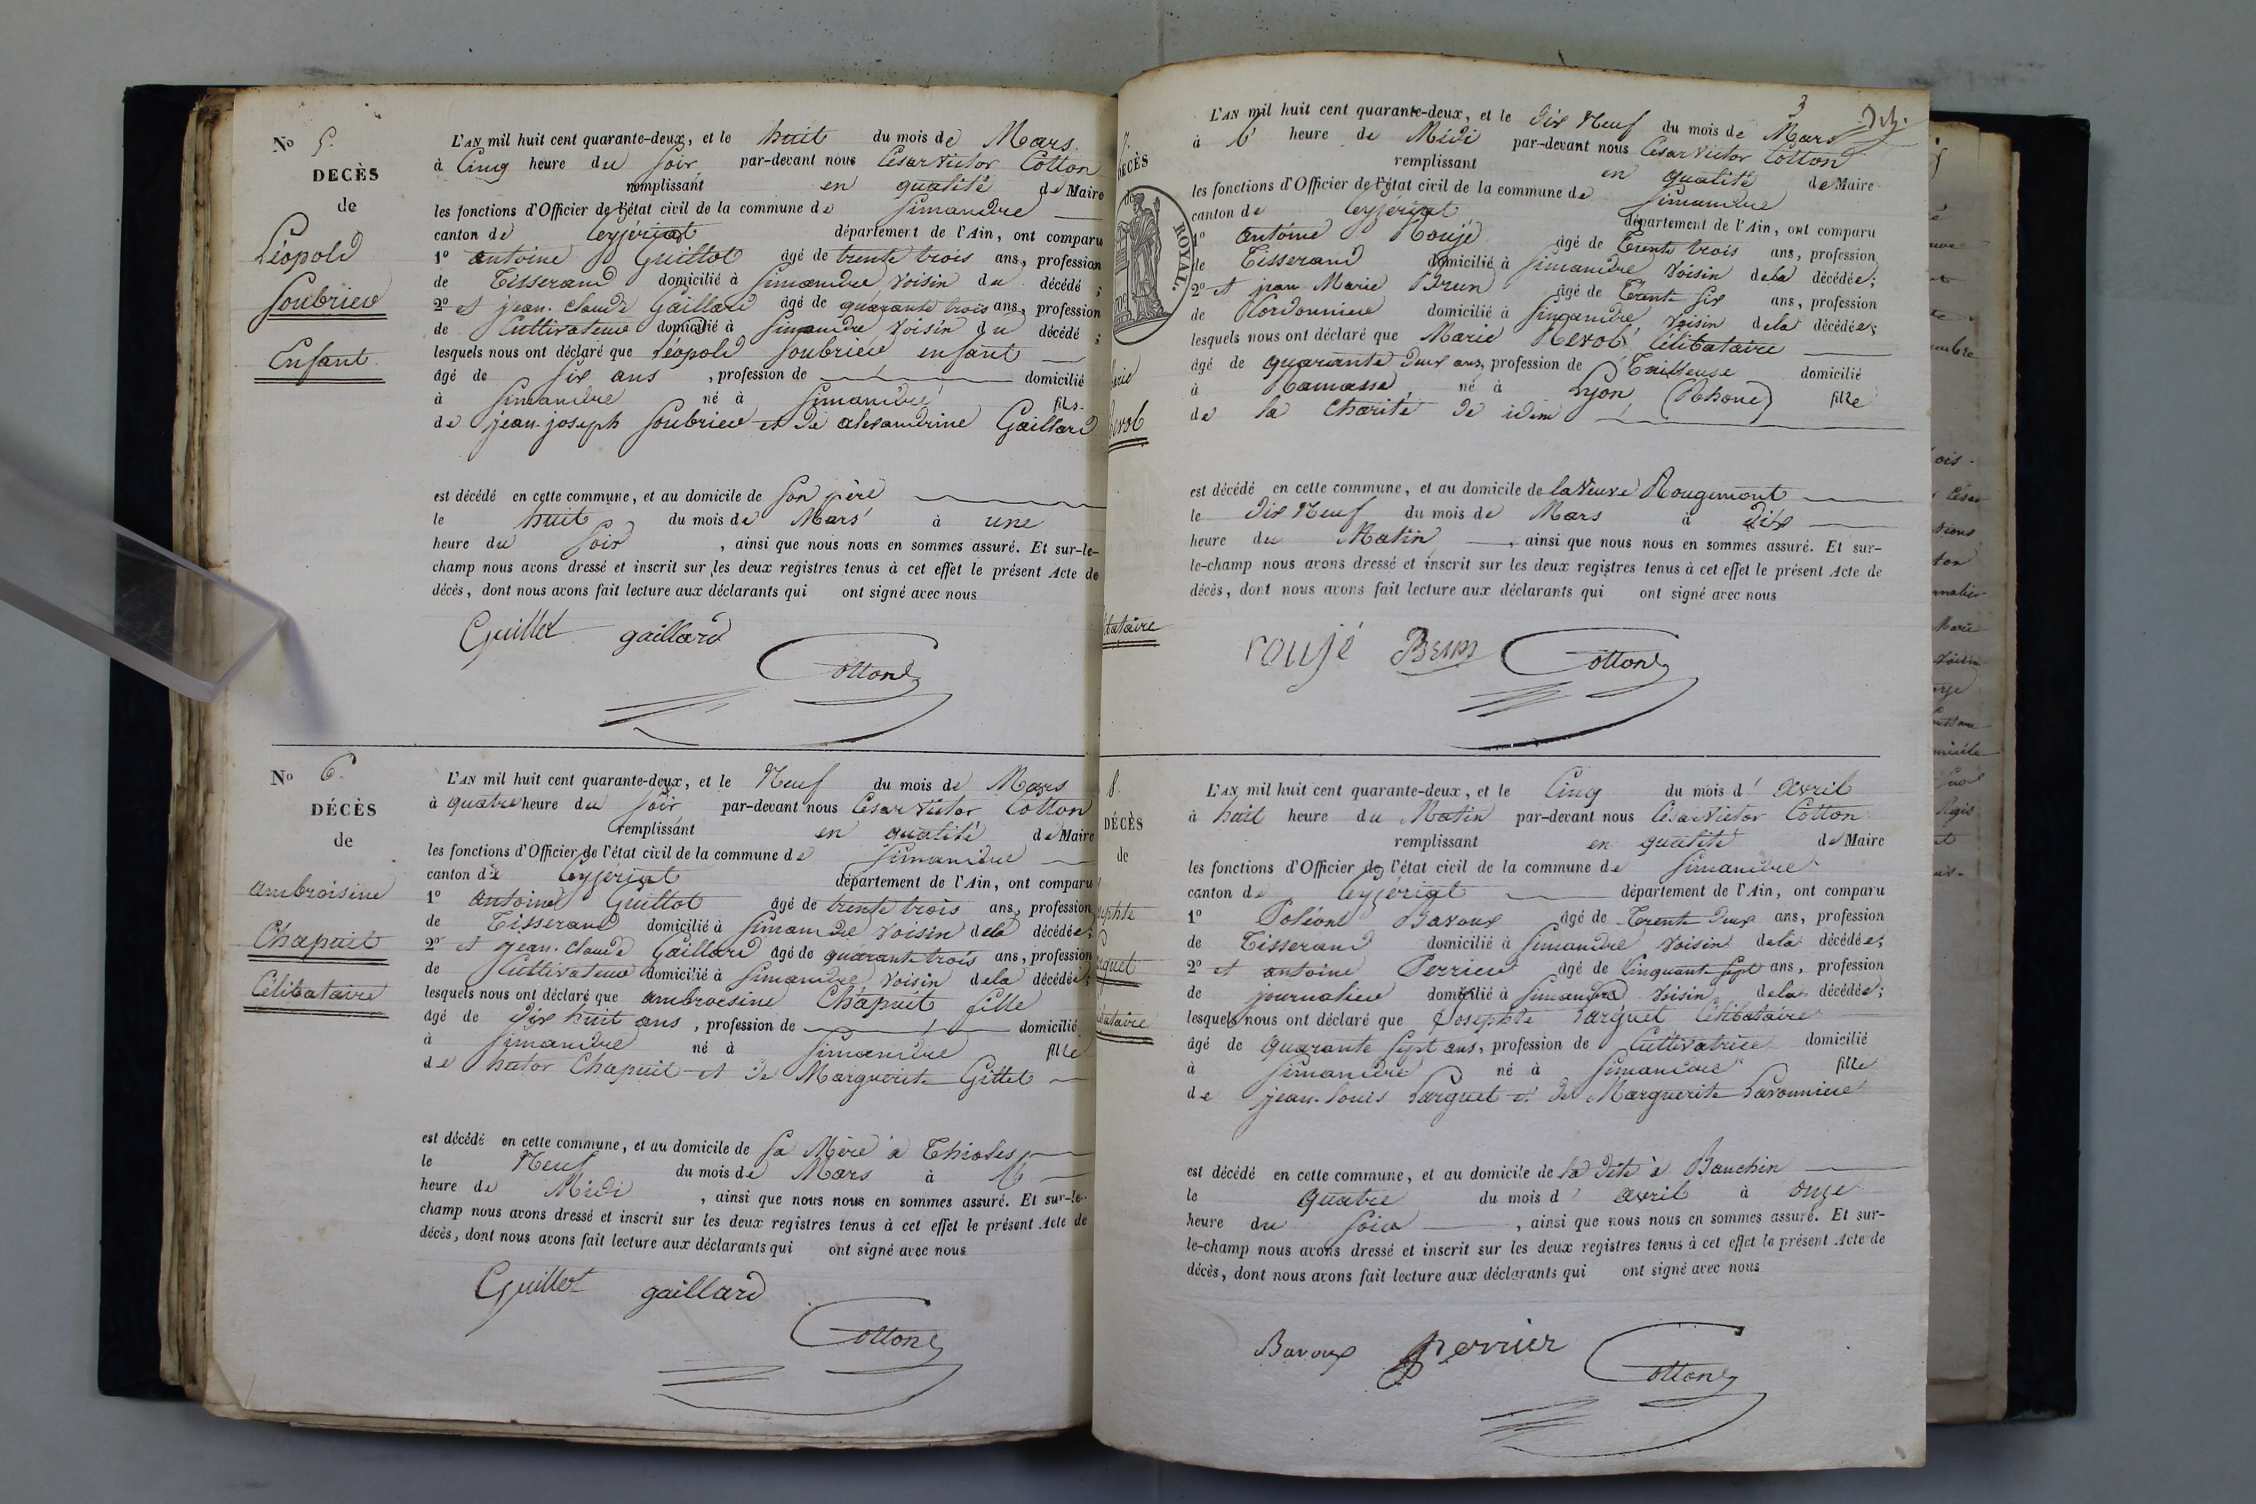 No 5.
DECÈS
de
Léopold
Soubrier
Enfant
L'AN mil huit cent quarante-deux, et le huit du mois de Mars
à Cinq heure du soir par-devant nous César Victor Cotton
remplissant en qualité de Maire
les fonctions d'Officier de l'état civil de la commune de Simandre
canton de Ceyzériat département de l'Ain, ont comparu
1º antoine Guillot âgé de trente trois ans, profession
de Tisserand domicilié à Simandre voisin du décédé ;
2º et jean. claude Gaillard âgé de quarante trois ans, profession
de Cultivateur domicilié à Simandre voisin du décédé ;
lesquels nous ont déclaré que Léopold Soubrier enfant
âgé de six ans , profession de domicilié
à Simandre né à Simandre fils
de jean-joseph Soubrier et de alexandrine Gaillard
est décédé en cette commune, et au domicile de son père
le huit du mois de Mars à une
heure du soir , ainsi que nous nous en sommes assuré. Et sur-le-
champ nous avons dressé et inscrit sur les deux registres tenus à cet effet le présent Acte de
décès, dont nous avons fait lecture aux déclarants qui ont signé avec nous
Guillot gaillard
Cotton
No 6.
DÉCÈS
de
ambroisine
Chapuit
Célibataire
L'AN mil huit cent quarante-deux, et le Neuf du mois de Mars
à quatre heure du soir par-devant nous César Victor Cotton
remplissant en qualité de Maire
les fonctions d'Officier de l'état civil de la commune de Simandre
canton de Ceyzériat département de l'Ain, ont comparu
1º antoine Guillot âgé de trente trois ans, profession
de Tisserand domicilié à Simandre voisin de la décédée;
2º et jean. claude Gaillard âgé de quarante trois ans, profession
de Cultivateur domicilié à Simandre voisin de la décédée;
lesquels nous ont déclaré que ambroisine Chapuit fille
âgé de dix huit ans , profession de domicilié
à Simandre né à Simandre fille
de hector Chapuit et de Marguerite Gittet
est décédé en cette commune, et au domicile de sa Mère à Thioles
le Neuf du mois de Mars à
heure de Midi , ainsi que nous nous en sommes assuré. Et sur-le-
champ nous avons dressé et inscrit sur les deux registres tenus à cet effet le présent Acte de
décès, dont nous avons fait lecture aux déclarants qui ont signé avec nous
Guillot gaillard
Cotton
3
7.
DECÈS
de
ROYAL.
L'AN mil huit cent quarante-deux, et le dix Neuf du mois de Mars
à heure de Midi par-devant nous César Victor Cotton
remplissant en qualité de Maire
les fonctions d'Officier de l'état civil de la commune de Simandre
canton de Ceyzériat département de l'Ain, ont comparu
1º antoine Roujé âgé de Trente trois ans, profession
de Tisserand domicilié à Simandre voisin de la décédée;
2º et jean Marie Brun âgé de Trente six ans, profession
de Cordonnier domicilié à Simandre voisin de la décédée;
lesquels nous ont déclaré que Marie Célibataire
âgé de quarante deux ans, profession de domicilié
à Ramasse né à Lyon (Rhone) fille
de la charité de idem
est décédé en cette commune, et au domicile de la veuve Rougemont
le dix Neuf du mois de Mars à dix
heure du Matin , ainsi que nous nous en sommes assuré. Et sur-
le-champ nous avons dressé et inscrit sur les deux registres tenus à cet effet le présent Acte de
décès, dont nous avons fait lecture aux déclarants qui ont signé avec nous
roujé Brun Cotton
8.
DÉCÈS
de
L'AN mil huit cent quarante-deux, et le Cinq du mois d' avril
à huit heure du Matin par-devant nous César Victor Cotton
remplissant en qualité de Maire
les fonctions d'Officier de l'état civil de la commune de Simandre
canton de Ceyzériat département de l'Ain, ont comparu
1º Poléone Bavoux âgé de Trente deux ans, profession
de Tisserand domicilié à Simandre voisin de la décédée;
2º et antoine Perrier âgé de Cinquante sept ans, profession
de journalier domicilié à Simandre voisin de la décédée;
lesquels nous ont déclaré que Josephte Parquet Célibataire
âgé de quarante sept ans, profession de Cultivatrice domicilié
à Simandre né à Simandre fille
de jean-louis Parquet et de Marguerite
est décédé en cette commune, et au domicile de la dite à Banchin
le quatre du mois d' avril à onze
heure du soir , ainsi que nous nous en sommes assuré. Et sur-
le-champ nous avons dressé et inscrit sur les deux registres tenus à cet effet le présent Acte de
décès, dont nous avons fait lecture aux déclarants qui ont signé avec nous
Bavoux Perrier Cotton